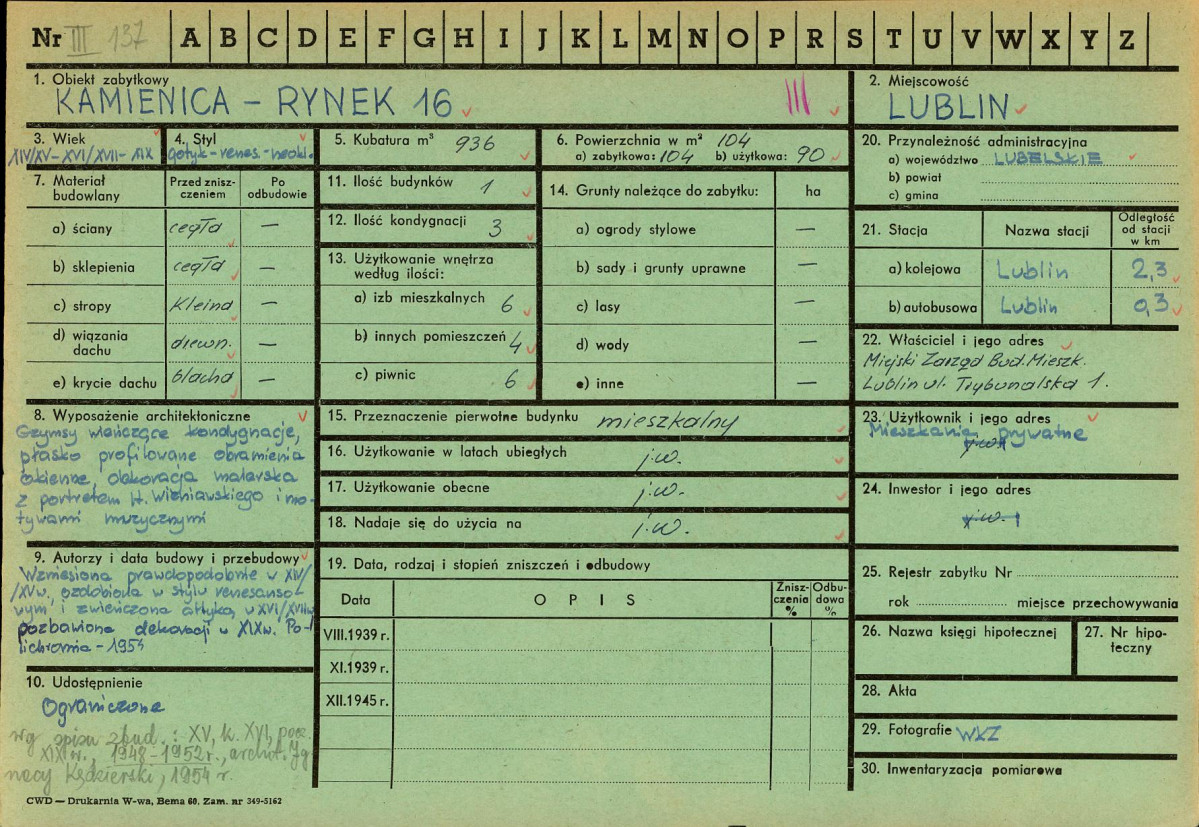 Nr III 137 A B C D E F G H I J K L M N O P R S T U V W X Y Z
1. Obiekt zabytkowy
KAMIENICA – RYNEK 16 III
2. Miejscowość
LUBLIN
3. Wiek
XIV/XV–XVI/XVII–XIX
4. Styl
gotyk-renes.-neokl.
5. Kubatura m³ 936
6. Powierzchnia w m² 104
a) zabytkowa: 104 b) użytkowa: 90
20. Przynależność administracyjna
a) województwo LUBELSKIE
b) powiat
c) gmina
7. Materiał budowlany
Przed zniszczeniem
Po odbudowie
a) ściany cegła —
b) sklepienia cegła —
c) stropy Kleina —
d) wiązania dachu drewn. —
e) krycie dachu blacha —
11. Ilość budynków 1
12. Ilość kondygnacji 3
13. Użytkowanie wnętrza
według ilości:
a) izb mieszkalnych 6
b) innych pomieszczeń 4
c) piwnic 6
14. Grunty należące do zabytku: ha
a) ogrody stylowe —
b) sady i grunty uprawne —
c) lasy —
d) wody —
e) inne —
21. Stacja Nazwa stacji Odległość od stacji w km
a) kolejowa Lublin 2,3
b) autobusowa Lublin 0,3
22. Właściciel i jego adres
Miejski Zarząd Bud. Mieszk.
Lublin ul. Trybunalska 1.
8. Wyposażenie architektoniczne
Gzymsy wieńczące kondygnacje,
płasko profilowane obramienia
okienne, dekoracja malarska
z portretem H. Wieniawskiego i mo-
tywami muzycznymi
15. Przeznaczenie pierwotne budynku mieszkalny
16. Użytkowanie w latach ubiegłych j.w.
17. Użytkowanie obecne j.w.
18. Nadaje się do użycia na j.w.
23. Użytkownik i jego adres
Mieszkania prywatne
j.w.
24. Inwestor i jego adres
j.w.
9. Autorzy i data budowy i przebudowy
Wzniesiona prawdopodobnie w XIV/
/XVw, ozdobiona w stylu renesanso-
wym i zwieńczona attyką, w XVI/XVIIw
pozbawiona dekoracji w XIXw. Po-
lichromia – 1954
19. Data, rodzaj i stopień zniszczeń i odbudowy
Data OPIS Zniszczenia % Odbudowa %
VIII.1939 r.
XI.1939 r.
XII.1945 r.
25. Rejestr zabytku Nr
rok miejsce przechowywania
26. Nazwa księgi hipotecznej
27. Nr hipoteczny
10. Udostępnienie
Ograniczone
wg spisu zbud.: XV, k. XVI, pocz.
XIX w., 1948–1952 r., archit. Ig-
nacy Kędzierski, 1954 r.
28. Akta
29. Fotografie WKZ
30. Inwentaryzacja pomiarowa
CWD — Drukarnia W-wa, Bema 60. Zam. nr 349-5162